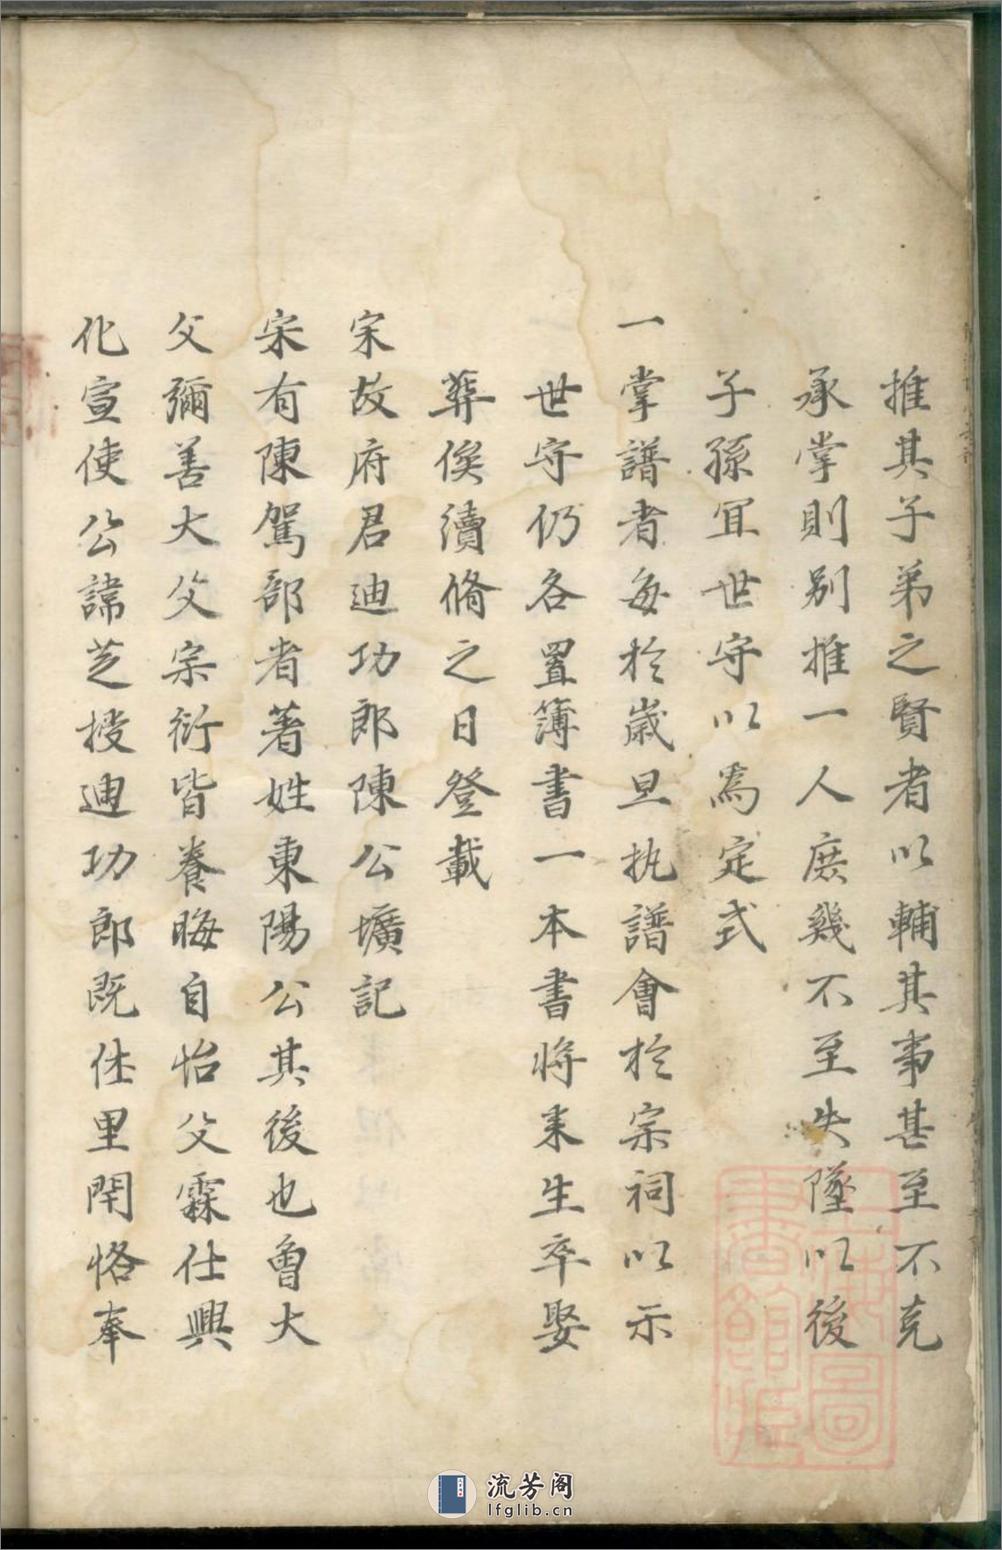 推其子弟之賢者以輔其事甚至不克
承掌則別推一人庶幾不至失墜以後
子孫冝世守以為定式
一掌譜者每於歲旦执譜會於宗祠以示
世守仍各置簿書一本書將来生卒娶
葬俟續脩之日登載
宋故府君迪功郎陳公壙記
宋有陳駕部者著姓東陽公其後也曾大
父彌善大父宗衍皆養晦自怡父霖仕興
化宣使公諱芝授迪功郎既仕里閈恪奉
上海圖
書館藏
流芳阁
lfglib.cn